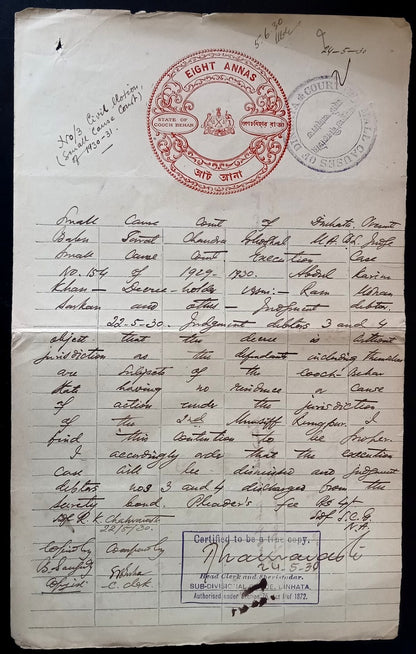 5.6.30
24-5-30
No/3 Civil Motion,
(Small Cause Court)
of 1930-31.
EIGHT ANNAS
STATE OF
COOCH BEHAR
আট আনা
COURT OF SMALL CAUSES OF
Small Cause Court of Dinhata, Present
Babu Chandra
Small Cause Court Execution Case
No. 154 of 1929-1930. Abdul Karim
Khan - Decree-holder Versus - Ram
Sarkar and others - Judgment debtor.
22-5-30. Judgement debtors 3 and 4
object that the decree is without
jurisdiction as the defendants including themselves
are subjects of the Cooch-Behar
State having no residence or cause
of action under the jurisdiction
of the 2nd Munsiff Rungpur. I
find this contention to be proper.
I accordingly order that the execution
case be dismissed and judgment
debtors nos 3 and 4 discharged from the
surety bond. Pleader's fee Rs
22/5/30
Copied by Compared by
Copyist C. clerk
Certified to be a true copy.
24.5.30
Head Clerk and Sheristadar.
SUB-DIVISIONAL OFFICE, DINHATA.
Authorised under Section 76 Act I of 1872.